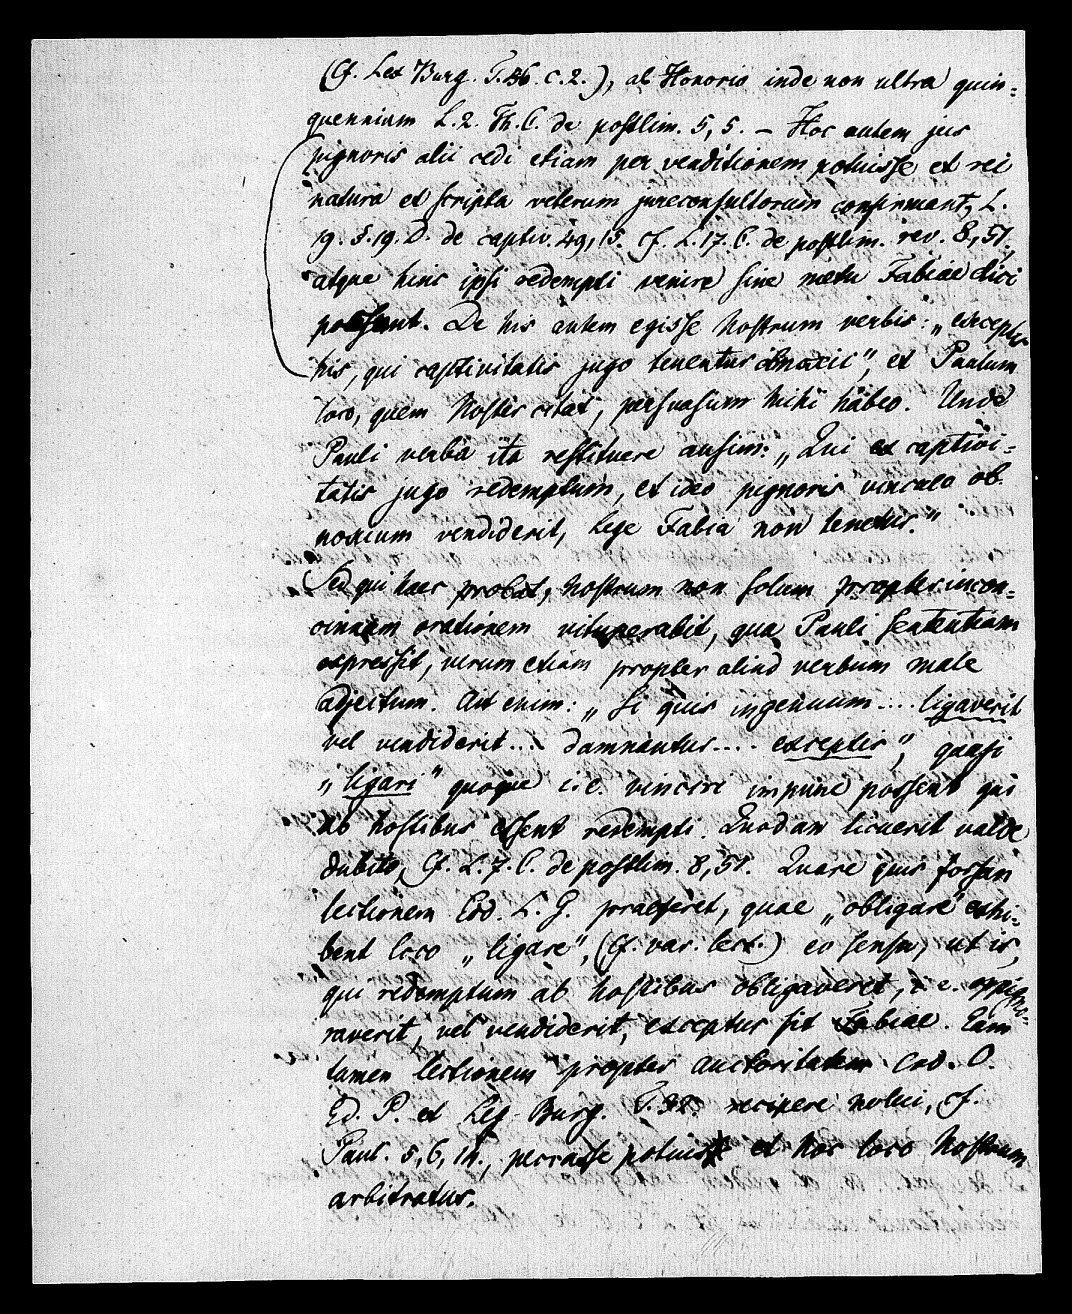 (Cf. Lex Burg. T. 56. c. 2.), ab Honorio inde non ultra quin-
quennium L. 2. Th. C. de postlim. 5, 5. — Hoc autem jus
pignoris alii cedi etiam per venditionem potuisse et rei
natura et scripta veterum jureconsultorum confirmant, L.
19. §. 19. D. de captiv. 49, 15. cf. L. 17. C. de postlim. rev. 8, 51.,
atque hinc ipsi redempti venire sine metu Fabiae dici
possunt. De his autem egisse Nostrum verbis: „exceptis
his, qui captivitatis jugo tenentur obnoxii“, et Paulum
loco, quem Noster citat, persuasum mihi habeo. Unde
Pauli verba ita restituere ausim: „Qui ex captivi-
tatis jugo redemptum, et ideo pignoris vinculo ob-
noxium vendiderit, lege Fabia non tenetur.“
Sed qui haec probat, Nostrum non solum propter incon-
cinnam orationem vituperabit, qua Pauli sententiam
expressit, verum etiam propter aliud verbum male
adjectum. Ait enim: „Si quis ingenuum .... ligaverit
vel vendiderit... damnantur .... exceptis“, quasi
„ligari“ quoque i. e. vincire impune possent qui
ab hostibus essent redempti. Quod an licuerit valde
dubito, Cf. L. 7. C. de postlim. 8, 51. Quare quis forsan
lectionem Cod. L. G. praeferet, quae „obligare“ exhi-
bent loco „ligare“, (Cf. var. lect.) eo sensu, ut is,
qui redemptum ab hostibus obligaverit, i. e. oppigno-
raverit, vel vendiderit, exceptus sit Fabiae. Eam
tamen lectionem propter auctoritatem Cod. O.
Ed. P. et Leg. Burg. T. recipere nolui, cf.
Paul. 5, 6, 14., peccasse potuisse et hoc loco Nostrum
arbitratus.